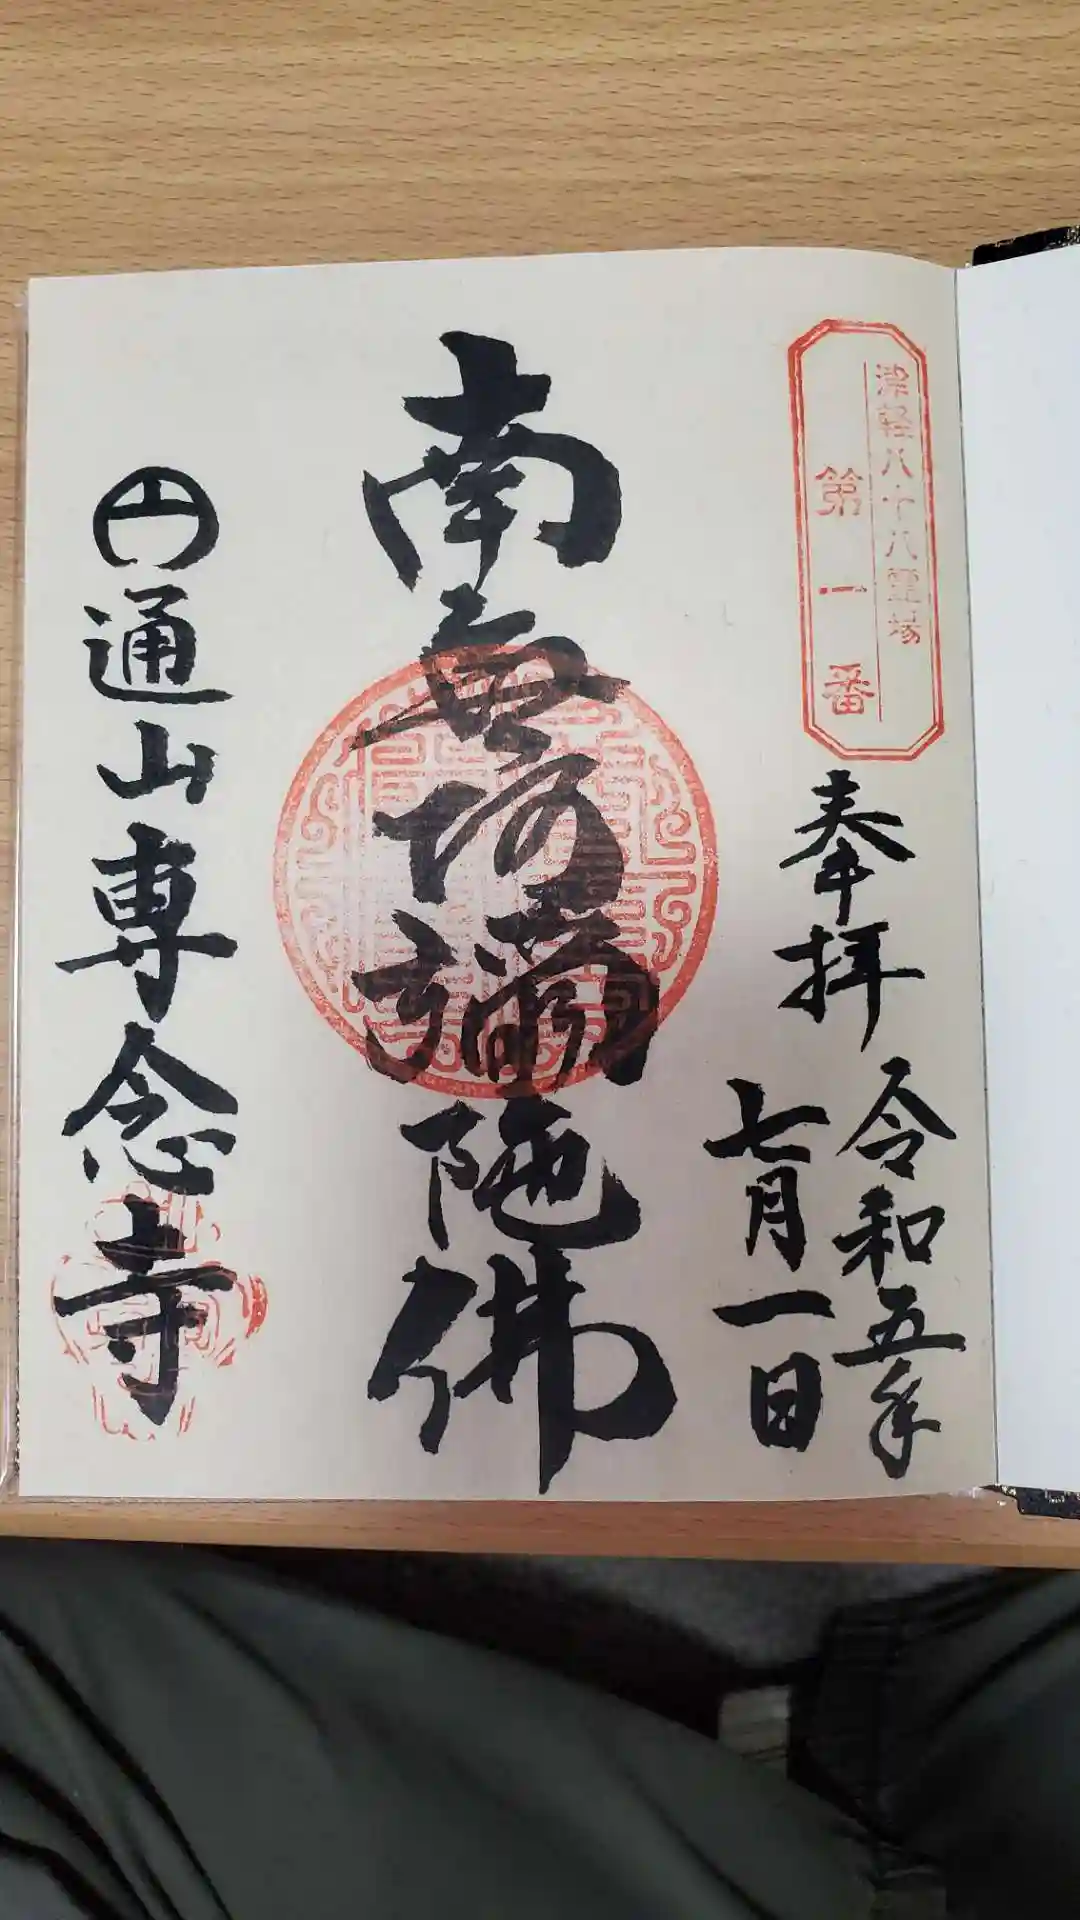 津軽八十八霊場
第一番
奉拝
令和五年
七月一日
南無阿彌陀佛
円通山専念寺